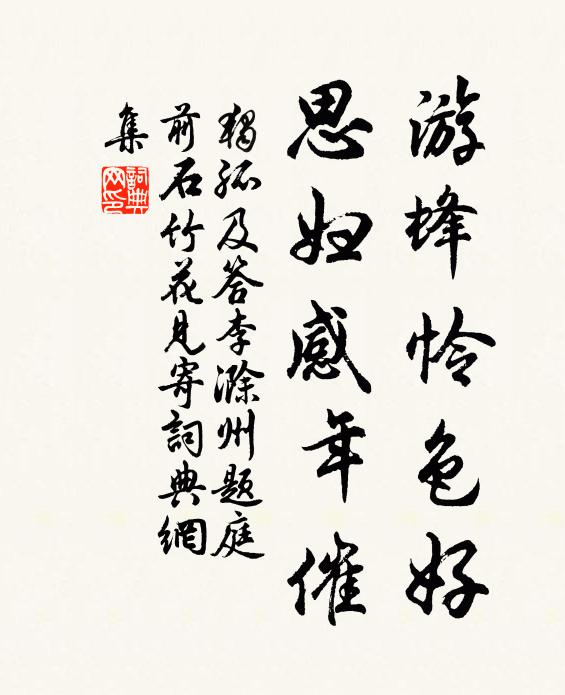 游蜂怜色好
思妇感年催
独孤及答李滁州题庭
前石竹花見寄詞典網
集
詞典
网印